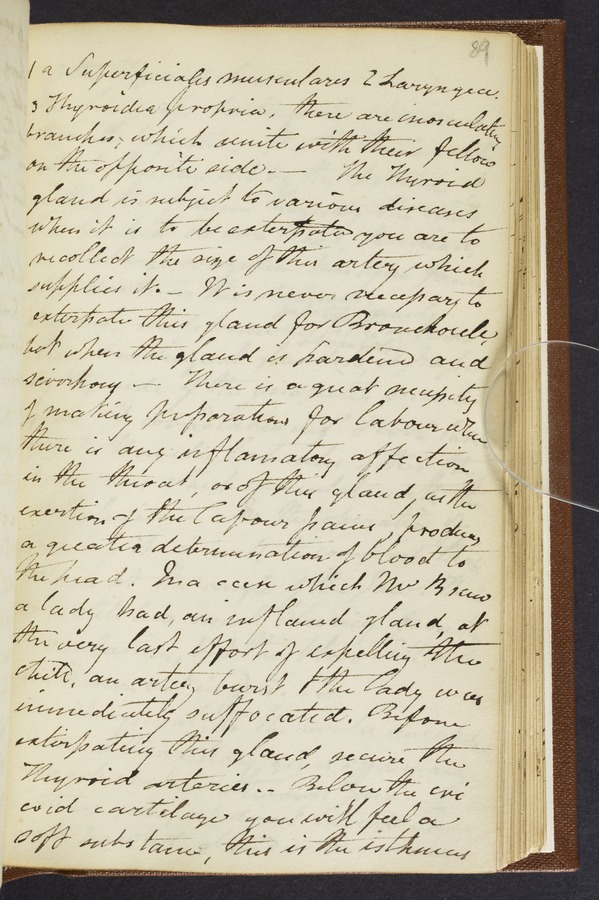 89
1 a Superficiales musculares 2 Laryngea.
3 Thyroidea propria, there are inosculating
branches, which unite with their fellow
on the opposite side. — The Thyroid
gland is subject to various diseases
when it is to be exterpated you are to
recollect the size of this artery which
supplies it. — It is never necessary to
exterpate this gland for Bronchocele
but when the gland is hardend and
scirrhous — There is a great necessity
of making preparations for labour when
there is any inflamatory affection
in the throat, or of this gland, as the
exertion of the labour pains, produces
a greater determination of blood to
the head. In a case which Mr B saw
a lady had, an inflamed gland, at
the very last effort of expelling the
child, an artery burst & the lady was
immediately suffocated. Before
exterpating this gland, secure the
Thyroid arteries. — Below the cri
coid cartilage you will feel a
soft substance, this is the isthmus